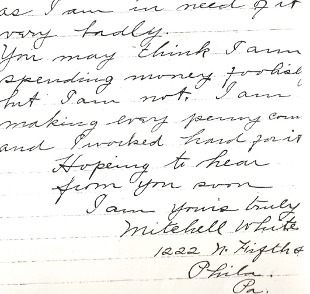 as I am in need of it
very badly.
You may think I am
spending money foolish
but I am not. I am
making every penny coun
and I worked hard for it
Hopeing to hear
from you soon
I am yours truly
Mitchell White
1222 N. Fifth s
Phila.
Pa.